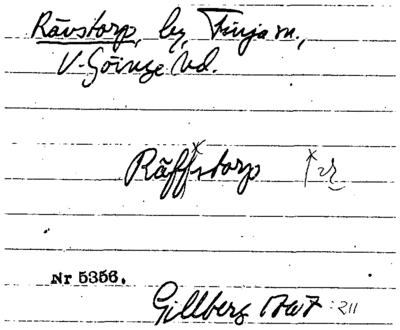 Rävstorp, by, Finja sn.,
V. Göinge hd.
Räffstorp
Nr 5356.
Gillberg 1767: 211